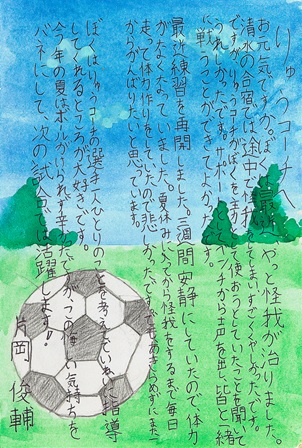 りゅうコーチへ
お元気ですか。ぼくは最近やっと怪我が治りました。
清水の合宿では、途中で怪我してしまいすごくくやしかった
ですが、りゅうコーチがぼくを主力として使おうとしていたことを聞いて
うれしかったです。サポートとしてベンチから声を出し皆と一緒
に戦うことができてよかったです。
最近練習を再開しました。三週間安静にしていたので体力
がなくなっていました。夏休みに入ってから怪我をするまで毎日
走って体力作りをしていたので悲しかったですが、あきらめずにまた一
からがんばりたいと思っています。
ぼくはりゅうコーチの選手一人ひとりのことを考えてていねいに指導
してくれるところが大好きです。
今年の夏はボールがけられず辛かったですが、この悔しい気持ちを
バネにして、次の試合では活躍します!
片岡俊輔